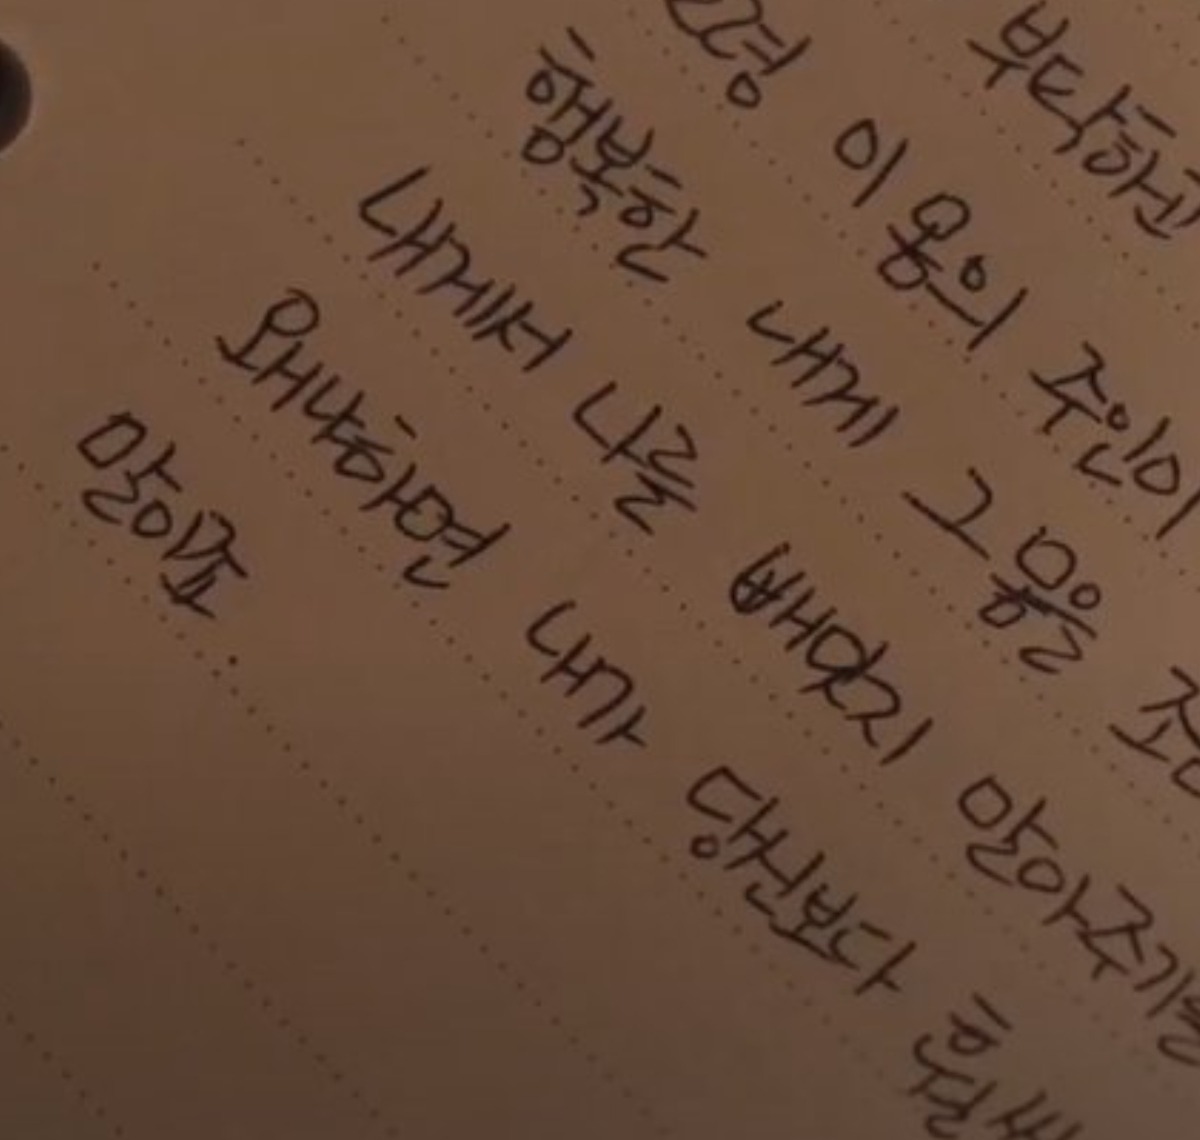 부탁하건
이 몸의 주인이
행복한 내게 그 몸을
내게서 나를 빼앗지 말아주기를
왜냐하면 내가 당신보다 훨씬
많이